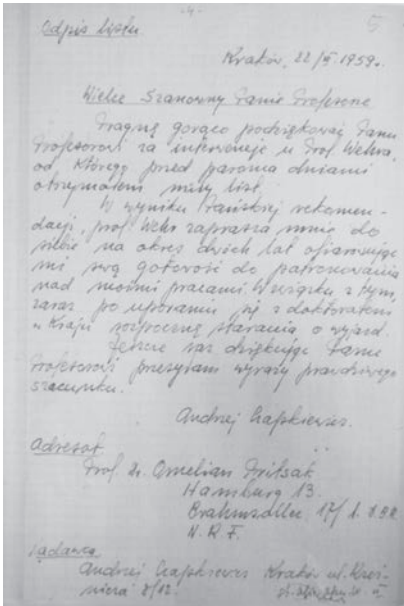 -4-
5
Odpis listu
Kraków, 22/III 1959 r.
Wielce Szanowny Panie Profesorze
Pragnę gorąco podziękować Panu
Profesorowi za interwencję u Prof. Wehra,
od którego przed paroma dniami
otrzymałem miły list.
W wyniku Pańskiej rekomen-
dacji, prof. Wehr zaprasza mnie do
siebie na okres dwóch lat ofiarowując
mi swą gotowość do patronowania
nad moimi pracami. W związku z tym,
zaraz po uporaniu się z doktoratem
w Kraju rozpocznę starania o wyjazd.
Jeszcze raz dziękując Panu
Profesorowi przesyłam wyrazy prawdziwego
szacunku.
Andrzej Czapkiewicz.
Adresat
Prof. Dr. Omelian Pritsak
Hamburg 13.
Brahmsallee 17/
N.R.F.
Nadawca
Andrzej Czapkiewicz Kraków ul. Kraś-